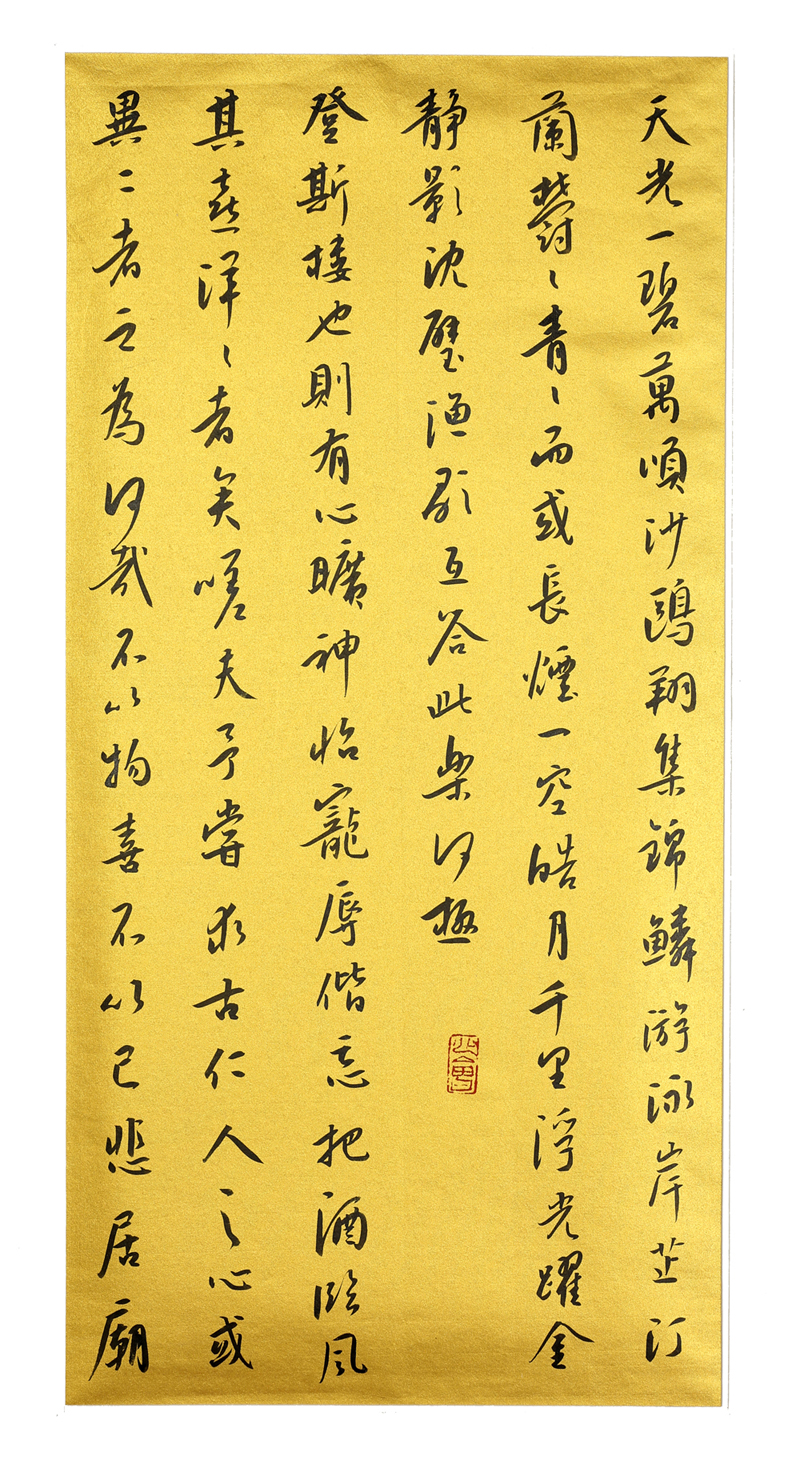 天光一碧萬頃沙鷗翔集錦鱗游泳岸芷汀
蘭鬱〻青〻而或長煙一空皓月千里浮光躍金
靜影沈璧漁歌互答此樂何極
登斯樓也則有心曠神怡寵辱偕忘把酒臨風
其喜洋〻者矣嗟夫予嘗求古仁人之心或
異二者之為何哉不以物喜不以己悲居廟